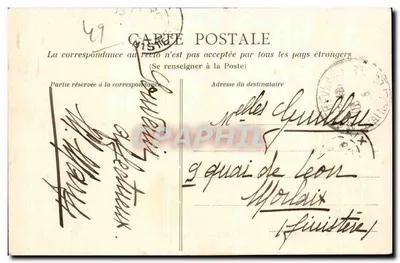 49
CARTE POSTALE
La correspondance au recto n'est pas acceptée par tous les pays étrangers
(Se renseigner à la Poste)
Partie réservée à la correspondance
Adresse du destinataire
Souvenir
affectueux.
Melles Guillou
9 quai de Léon
Morlaix
(Finistère)